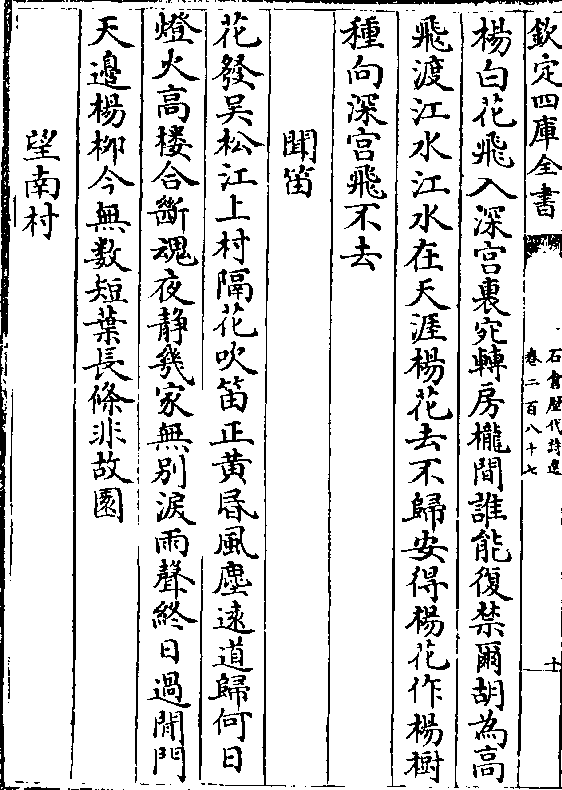 欽定四庫全書
石倉歷代詩選
卷二百八十七
十
楊白花飛入深宫裏宛轉房櫳間誰能復禁爾胡為高
飛渡江水江水在天涯楊花去不歸安得楊花作楊樹
種向深宫飛不去
聞笛
花發吳松江上村隔花吹笛正黄昏風塵逺道歸何日
燈火高樓合斷魂夜静幾家無别淚雨聲終日過閒門
天邊楊柳今無數短葉長條非故園
望南村